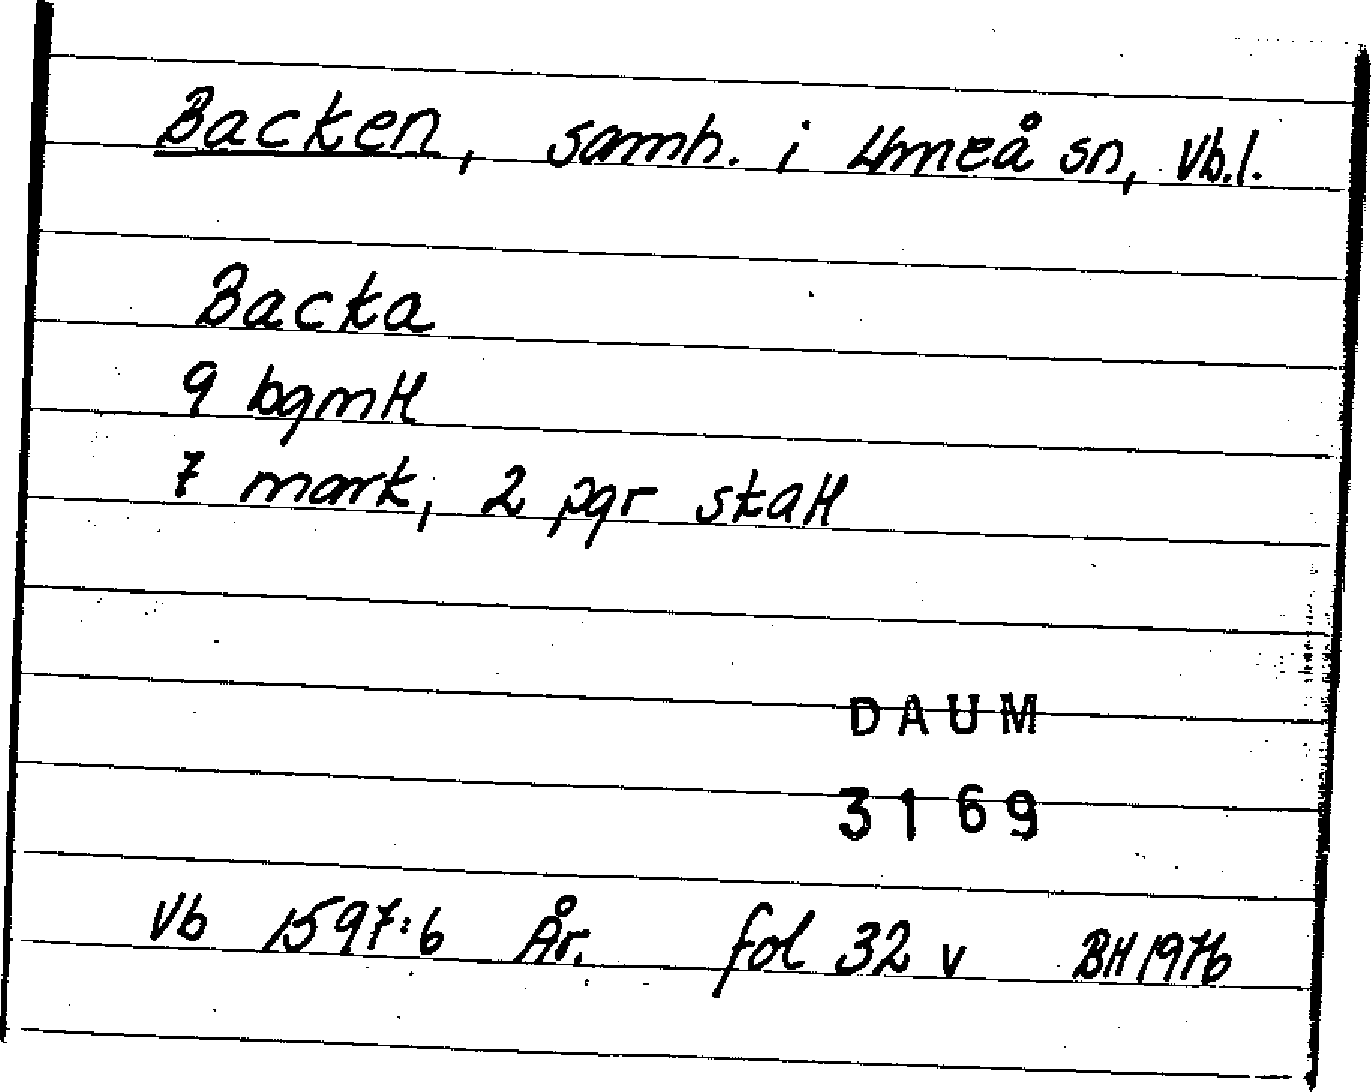 Backen, samh. i Umeå sn, Vb.l.
Backa
9 bgmtl
7 mark, 2 pgr skatt
DAUM
3169
Vb 1597:6 År. fol 32 v BH 1976